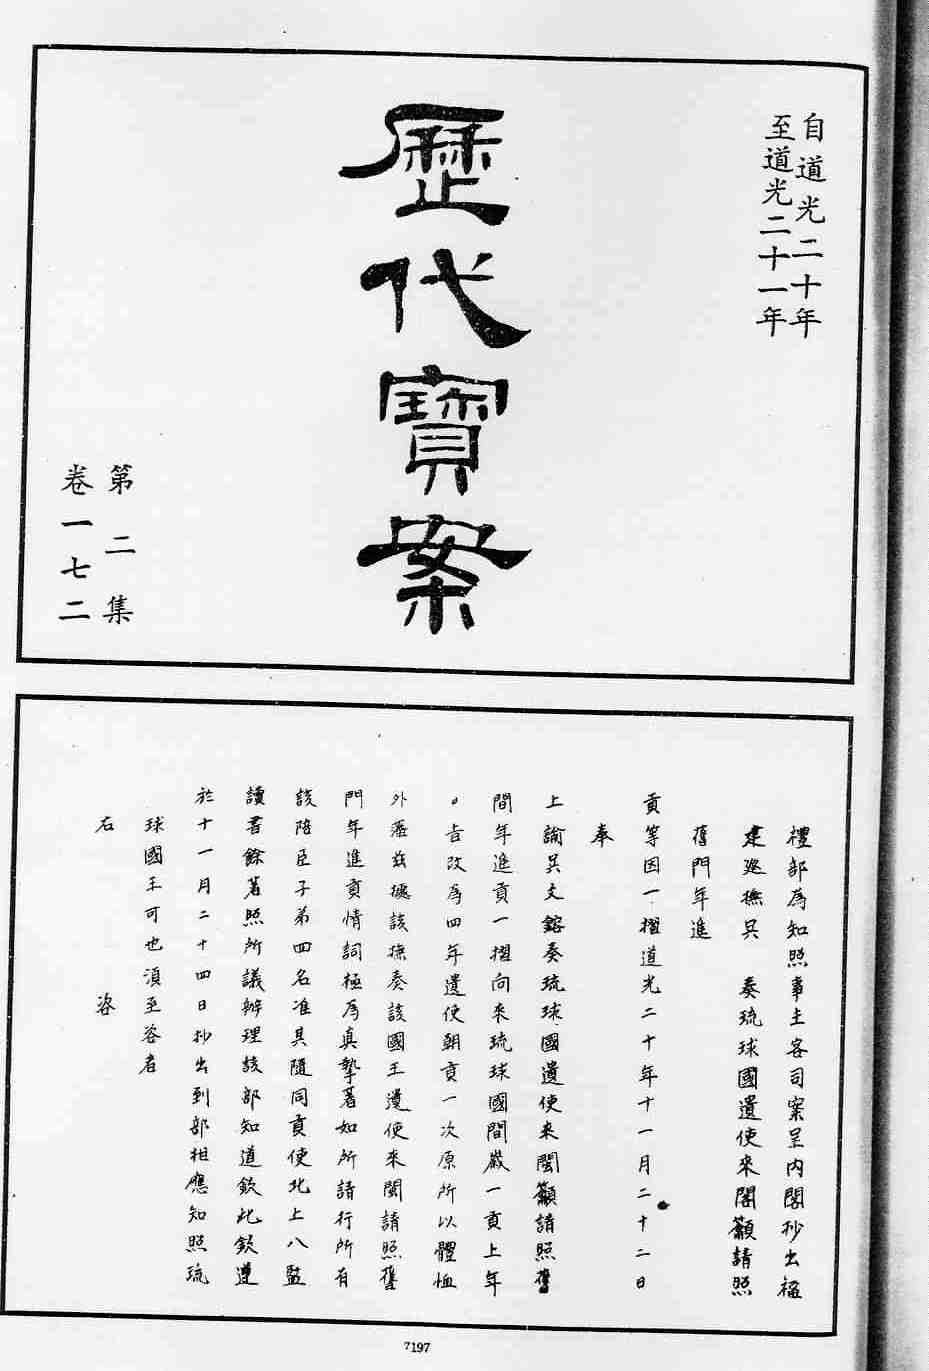 自道光二十年
至道光二十一年
歷代寶案
第二集
卷一七二
禮部為知照事主客司案呈內閣抄出福
建巡撫吳　奏琉球國遣使來閩籲請照
舊門年進
貢等因一摺道光二十年十一月二十二日
奉
上諭吳文鎔奏琉球國遣使來閩籲請照舊
間年進貢一摺向來琉球國間歲一貢上年
。旨改為四年遣使朝貢一次原所以體恤
外藩茲據該撫奏該國王遣使來閩請照舊
門年進貢情詞極為真摯著如所請行所有
該陪臣子弟四名准其隨同貢使北上入監
讀書餘著照所議辦理該部知道欽此欽遵
於十一月二十四日抄出到部相應知照琉
球國王可也須至咨者
右　咨
7197